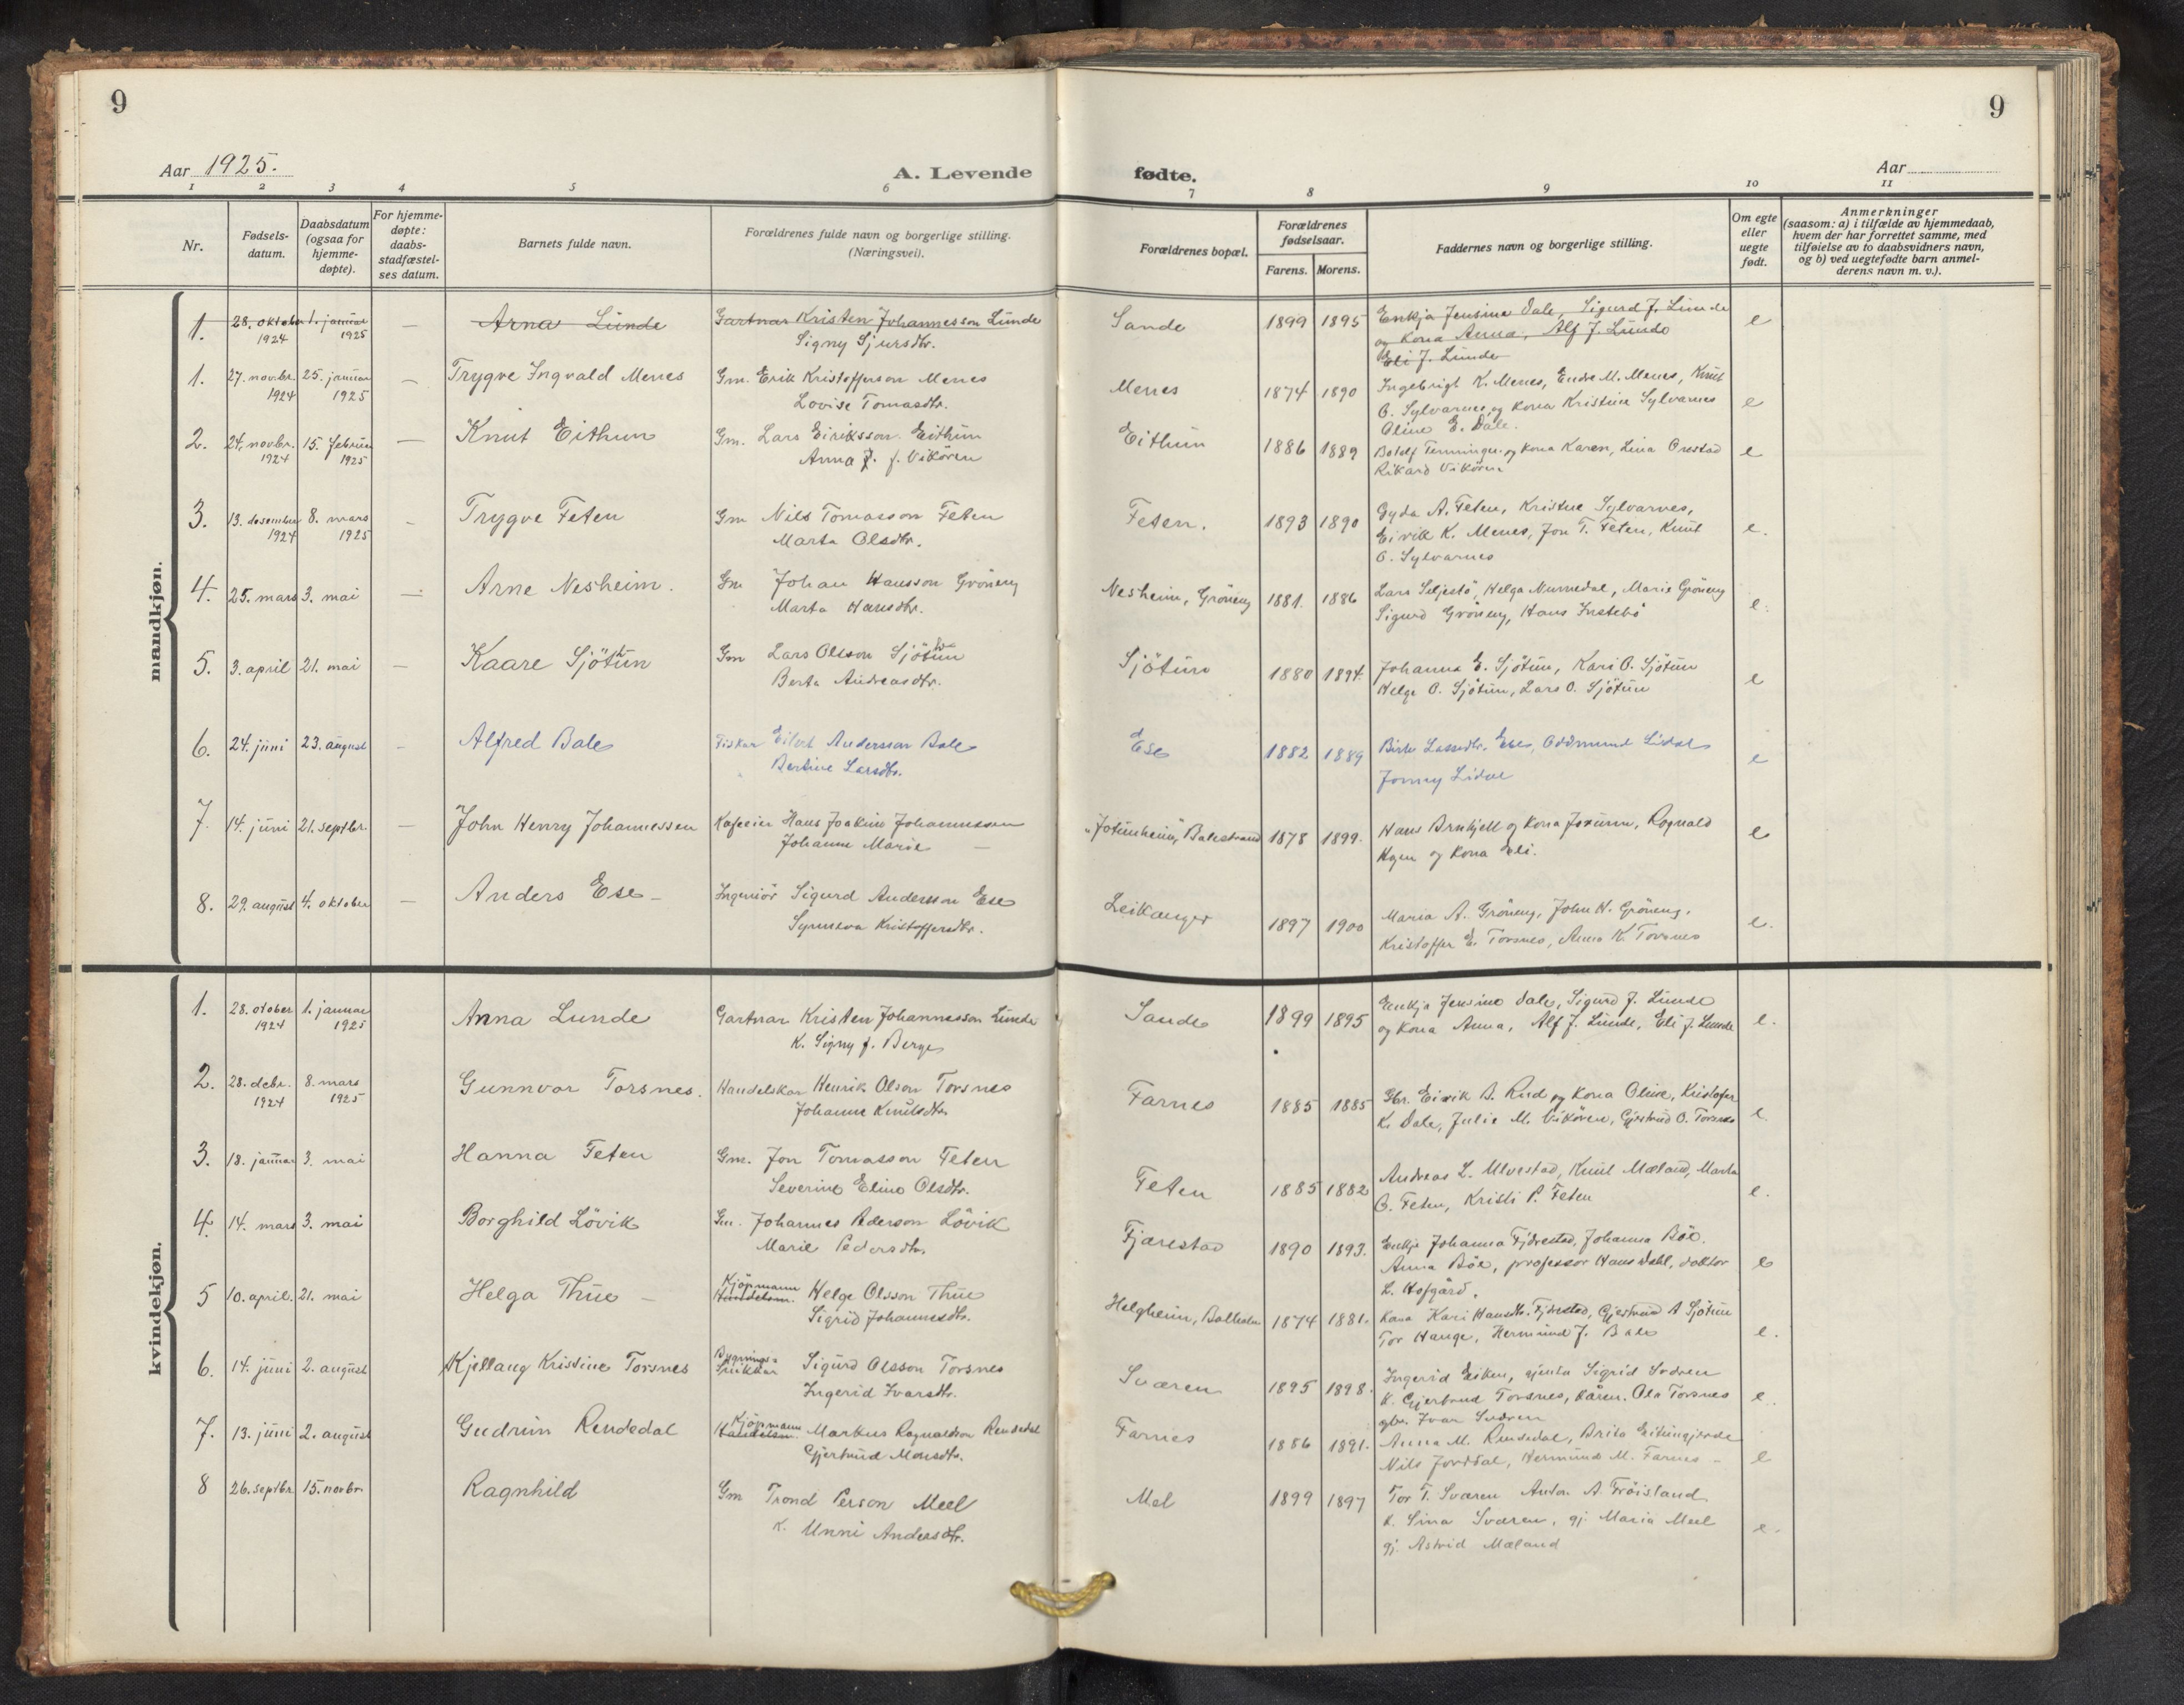 9
9
Aar 1925.
A. Levende
fødte.
Aar
1 2 3 4 5 6 7 8 9 10 11
Nr.
Fødsels-
datum.
Daabsdatum
(ogsaa for
hjemme-
døpte).
For hjemme-
døpte:
daabs-
stadfæstel-
ses datum.
Barnets fulde navn.
Forældrenes fulde navn og borgerlige stilling.
(Næringsvei).
Forældrenes bopæl.
Forældrenes
fødselsaar.
Farens. Morens.
Faddernes navn og borgerlige stilling.
Om egte
eller
uegte
født.
Anmerkninger
(saasom: a) i tilfælde av hjemmedaab,
hvem der har forrettet samme, med
tilføielse av to daabsvidners navn,
og b) ved uegtefødte barn anmel-
derens navn m. v.).
mandkjøn.
1. 28. oktober 1. januar — Arna Lunde Gartnar Kristen Johannesson Lunde Sande 1899 1895 Enkja Jensine Dale, Sigurd J. Lunde e
1924 1925 Signy Sjursdtr. og kona Anna, Alf J. Lunde
Eli J. Lunde
1. 27. novbr. 25. januar — Trygve Ingvald Menes Gm. Erik Kristofferson Menes Menes 1874 1890 Ingebrigt K. Menes, Endre M. Menes, Knut e
1924 1925 Lovise Tomasdtr. O. Sylvarnes og kona Kristine Sylvarnes
Oline E. Dale.
2. 24. novbr. 15. februar — Knut Eithun Gm. Lars Eiriksson Eithun Eithun 1886 1889 Botolf Tenninger og kona Karen, Lina Orestad e
1924 1925 Anna J. f. Vikören Rikard Vikören
3. 13. desember 8. mars - Trygve Feten Gm Nils Tomasson Feten Feten. 1893 1890 Gyda A. Feten, Kristine Sylvarnes, e.
1924 1925 Marta Olsdtr. Eirik K. Menes, Jon T. Feten, Knut
O. Sylvarnes
4. 25. mars 3. mai — Arne Nesheim. Gm Johan Hansson Gröneng Nesheim, Gröneng 1881. 1886 Lars Seljestö, Helga Nummedal, Marie Gröneng e.
Marta Hansdtr. Sigurd Gröneng, Hans Instebö
5. 3. april 21. mai — Kaare Sjötun Gm Lars Olsson Sjötun Sjötun 1880 1894. Johanna E. Sjötun, Kari O. Sjötun e
Berta Andreasdtr. Helge O. Sjötun, Lars O. Sjötun
6. 24. juni 23. august - Alfred Bale Fiskar Eilert Andersson Bale Ese 1882 1889 Birte Lassedtr. Ese, Oddmund Lidal e
Bertine Larsdtr. Jonny Lidal
7. 14. juni 21. septbr. — John Henry Johannessen Kafeeier Hans Joakim Johannessen „Jotunheim", Balestrand 1878 1899. Hans Brekjell og kona Jorunn, Rognald e
Johanne Marie — og kona Eli.
8. 29. august 4. oktober — Anders Ese - Ingeniör Sigurd Andersson Ese Leikanger 1897 1900 Maria A. Gröneng, John H. Gröneng. e.
Synneva Kristoffersdtr. Kristoffer E. Torsnes, Anna K. Torsnes
kvindekjøn.
1. 28. otober 1. januar Anna Lunde Gartnar Kristen Johannesson Lunde Sande 1899 1895 Enkja Jensine Dale, Sigurd J. Lunde e.
1924 1925 K. Signy f. Berge og kona Anna, Alf J. Lunde, Eli J. Lunde
2. 28. debr. 8. mars Gunnvor Torsnes. Handelskar Henrik Olson Torsnes Farnes 1885 1885 Gbr. Eirik B. Rud og kona Oline, Kristofer e.
1924 1925 Johanne Knutsdtr. K. Dale, Julie M. Vikören, Gjertrud O. Torsnes
3. 18. januar 3. mai Hanna Feten Gm. Jon Tomasson Feten Feten 1885 1882 Andreas L. Ulvestad, Knut Mæland, Marta e.
Severine Eline Olsdtr. O. Feten, Kristi P. Feten
4. 14. mars 3. mai Borghild Lövik Gm. Johannes Pederson Lövik Fjærestad 1890 1893. Enkje Johanna Fjærestad, Johanna Böe. e
Marie Pedersdtr. Anna Böe, professor Hans Dahl, doktor
L. Hofgård.
5 10. april. 21. mai Helga Thue - Kjöpmann Handelsm. Helge Olsson Thue Helgheim, Balholm 1874 1881. kona Kari Hansdtr. Fjærestad, Gjertrud A Sjötun e.
Sigrid Johannesdtr. Tor Hauge, Hermund J. Bale
6. 14. juni 2. august Kjellaug Kristine Torsnes Bygnings- Snikkar Sigurd Olsson Torsnes Sværen 1895 1898. Ingerid Eiken, gjenta Sigrid Sværen e.
Ingerid Ivarsdtr. K. Gjertrud Torsnes, kåren. Ola Torsnes
gbr. Ivar Sværen
7. 13. juni 2. august Gudrun Rendedal Kjöpmann Handelsm. Markus Ragnaldson Rendedal Farnes 1886 1891. Anna M. Rendedal, Brita Eitungjerde e
Gjertrud Monsdtr. Nils Jorddal, Hermund M. Farnes -
8 26. septbr. 15. novbr. Ragnhild Gm Trond Person Meel Mel 1899 1897 Tor T. Sværen Anton A. Fröisland e.
K. Unni Andersdtr. K. Sina Sværen, gj. Maria Meel
gj. Astrid Mæland